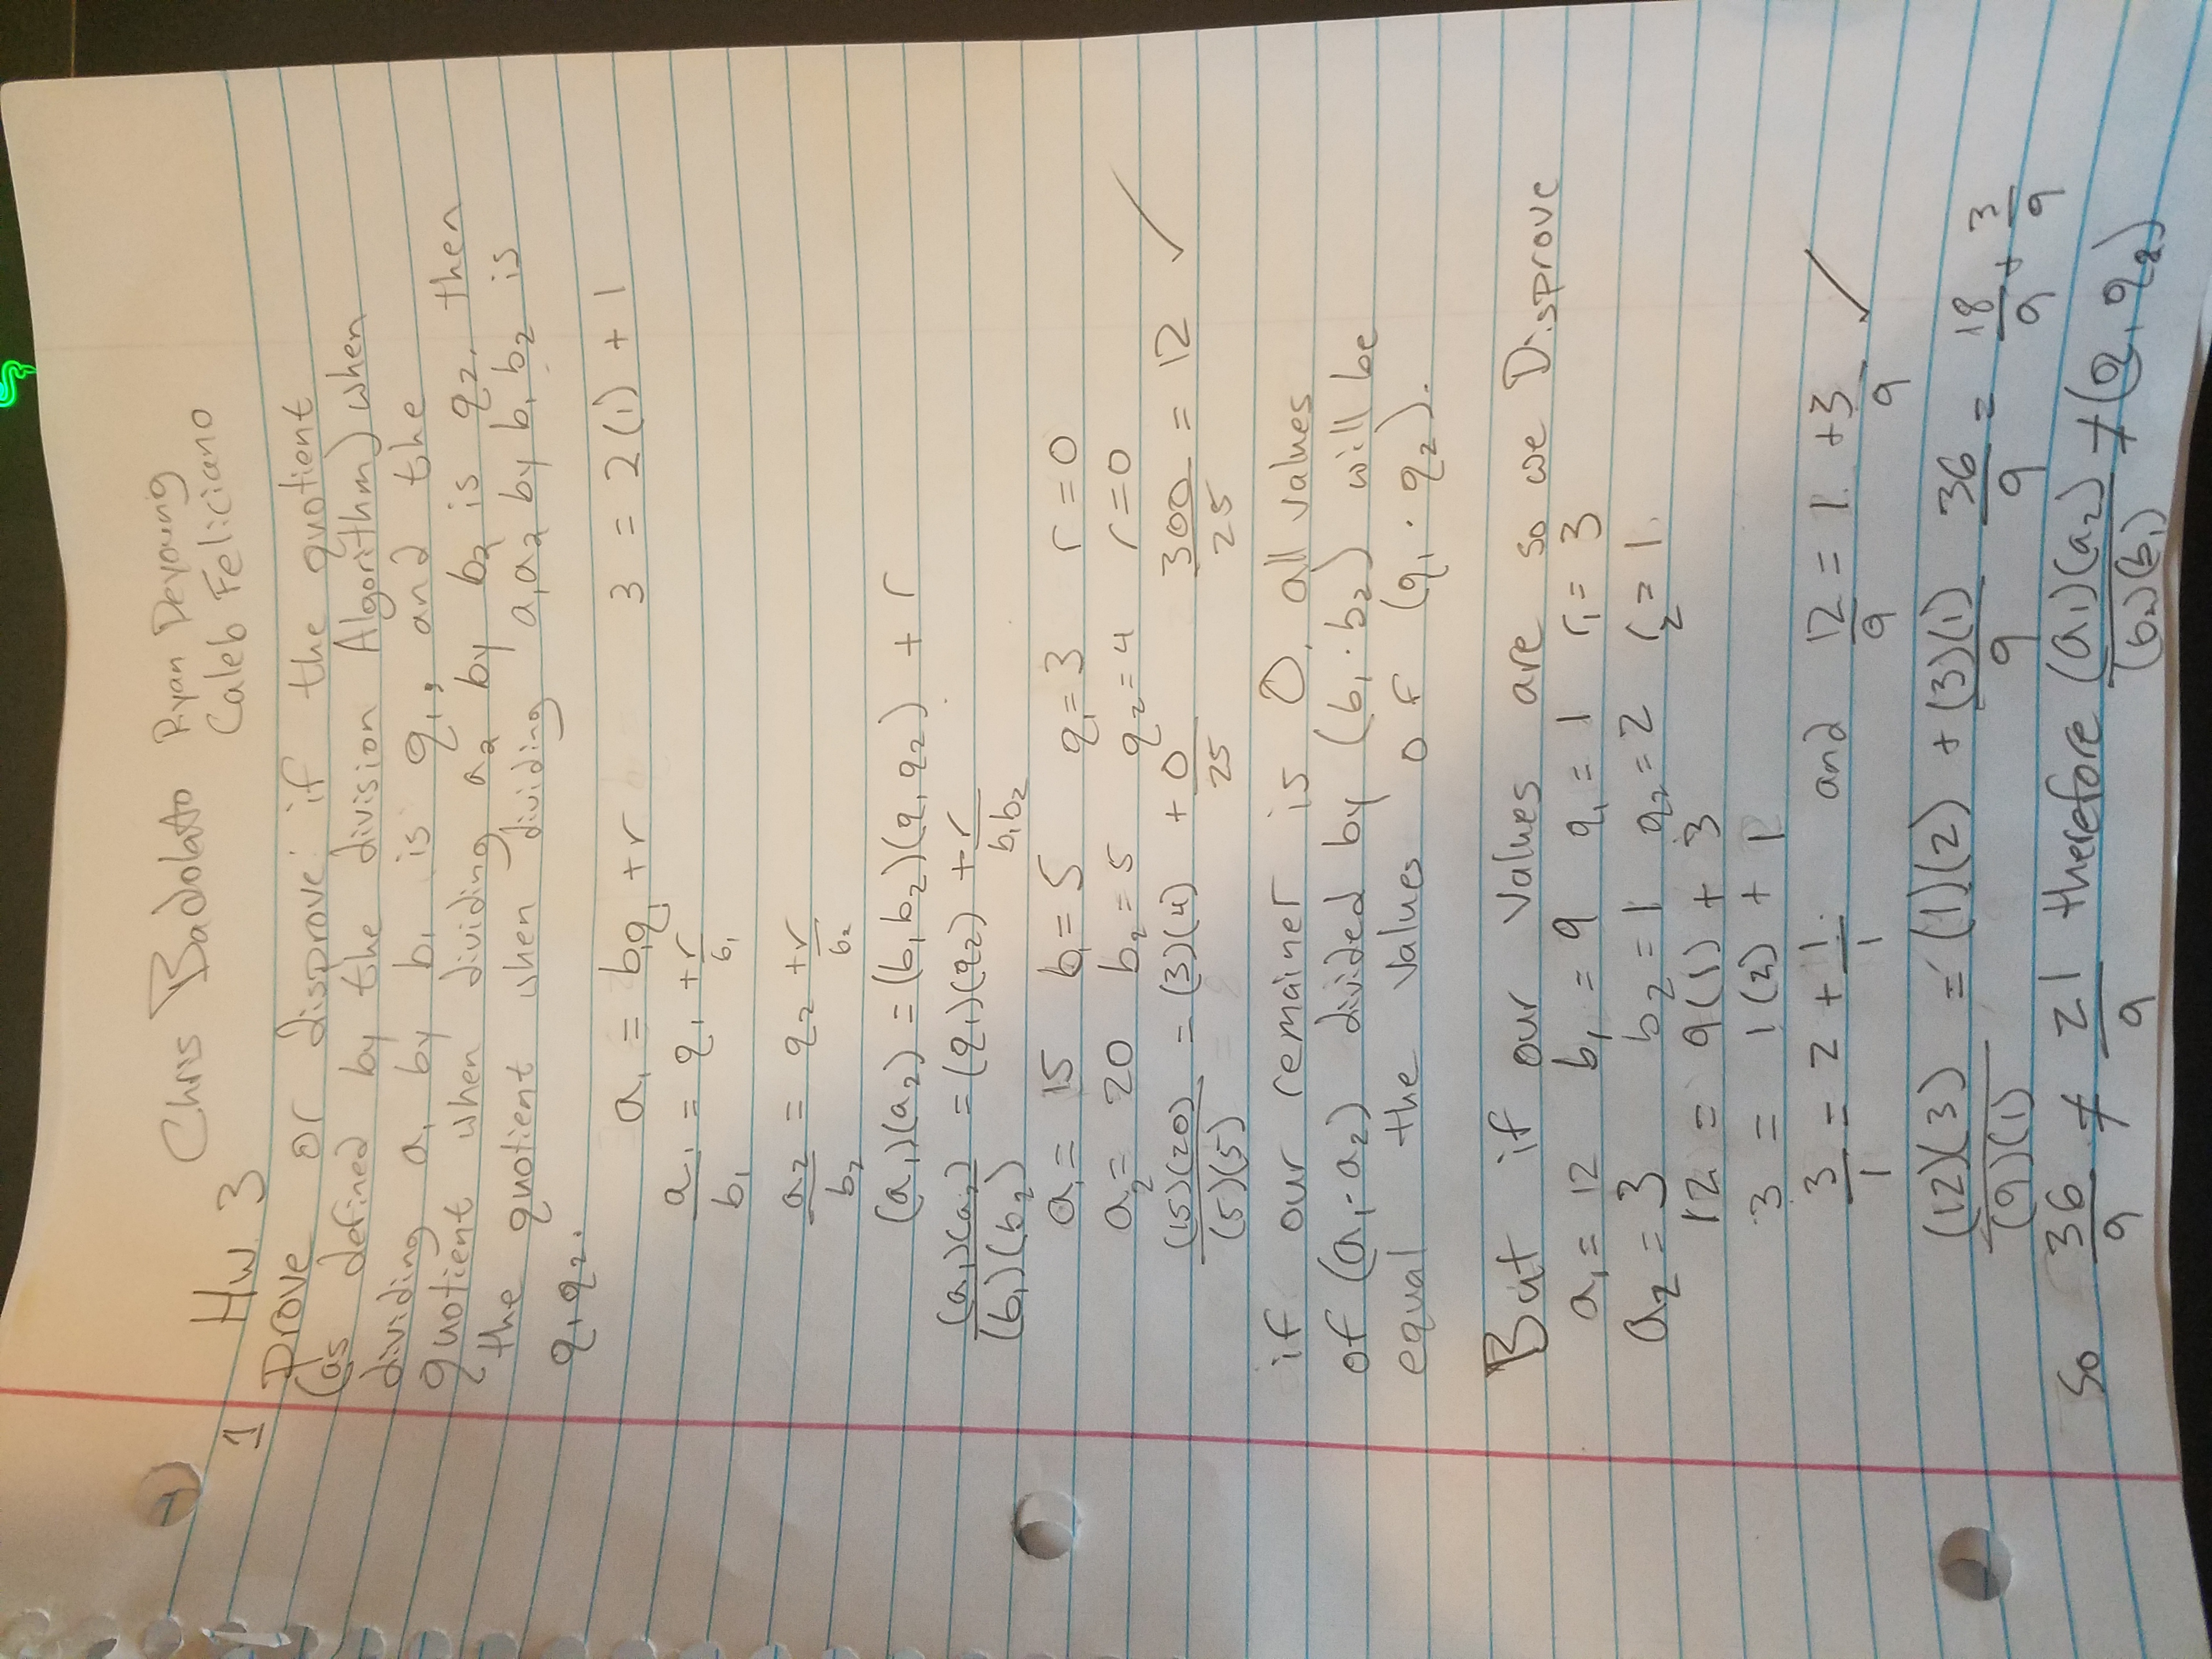 Chris Badolato Ryan Deyoung
Caleb Feliciano
Hw. 3
1 Prove or disprove: if the quotient
(as defined by the division Algorithm) when
dividing a₁ by b₁ is q₁, and the
quotient when dividing a₂ by b₂ is q₂. then
the quotient when dividing a₁a₂ by b₁b₂ is
q₁q₂.
a₁ = b₁q₁ + r 3 = 2(1) + 1
a₁/b₁ = q₁ + r/b₁
a₂/b₂ = q₂ + r/b₂
(a₁)(a₂) = (b₁b₂)(q₁q₂) + r
(a₁)(a₂)/(b₁)(b₂) = (q₁)(q₂) + r/b₁b₂
a₁ = 15 b₁ = 5 q₁ = 3 r = 0
a₂ = 20 b₂ = 5 q₂ = 4 r = 0
(15)(20)/(5)(5) = (3)(4) + 0/25 300/25 = 12 ✓
if our remainer is 0, all values
of (a₁·a₂) divided by (b₁·b₂) will be
equal the values of (q₁·q₂).
But if our values are so we Disprove
a₁ = 12 b₁ = 9 q₁ = 1 r₁ = 3
a₂ = 3 b₂ = 1 q₂ = 2 r₂ = 1.
12 = 9(1) + 3
3 = 1(2) + 1
3/1 = 2 + 1/1 and 12/9 = 1. + 3/9 ✓
(12)(3)/(9)(1) = (1)(2) + (3)(1)/9 36/9 = 18/9 + 3/9
So 36/9 ≠ 21/9 therefore (a₁)(a₂)/(b₂)(b₁) ≠ (q₁q₂)